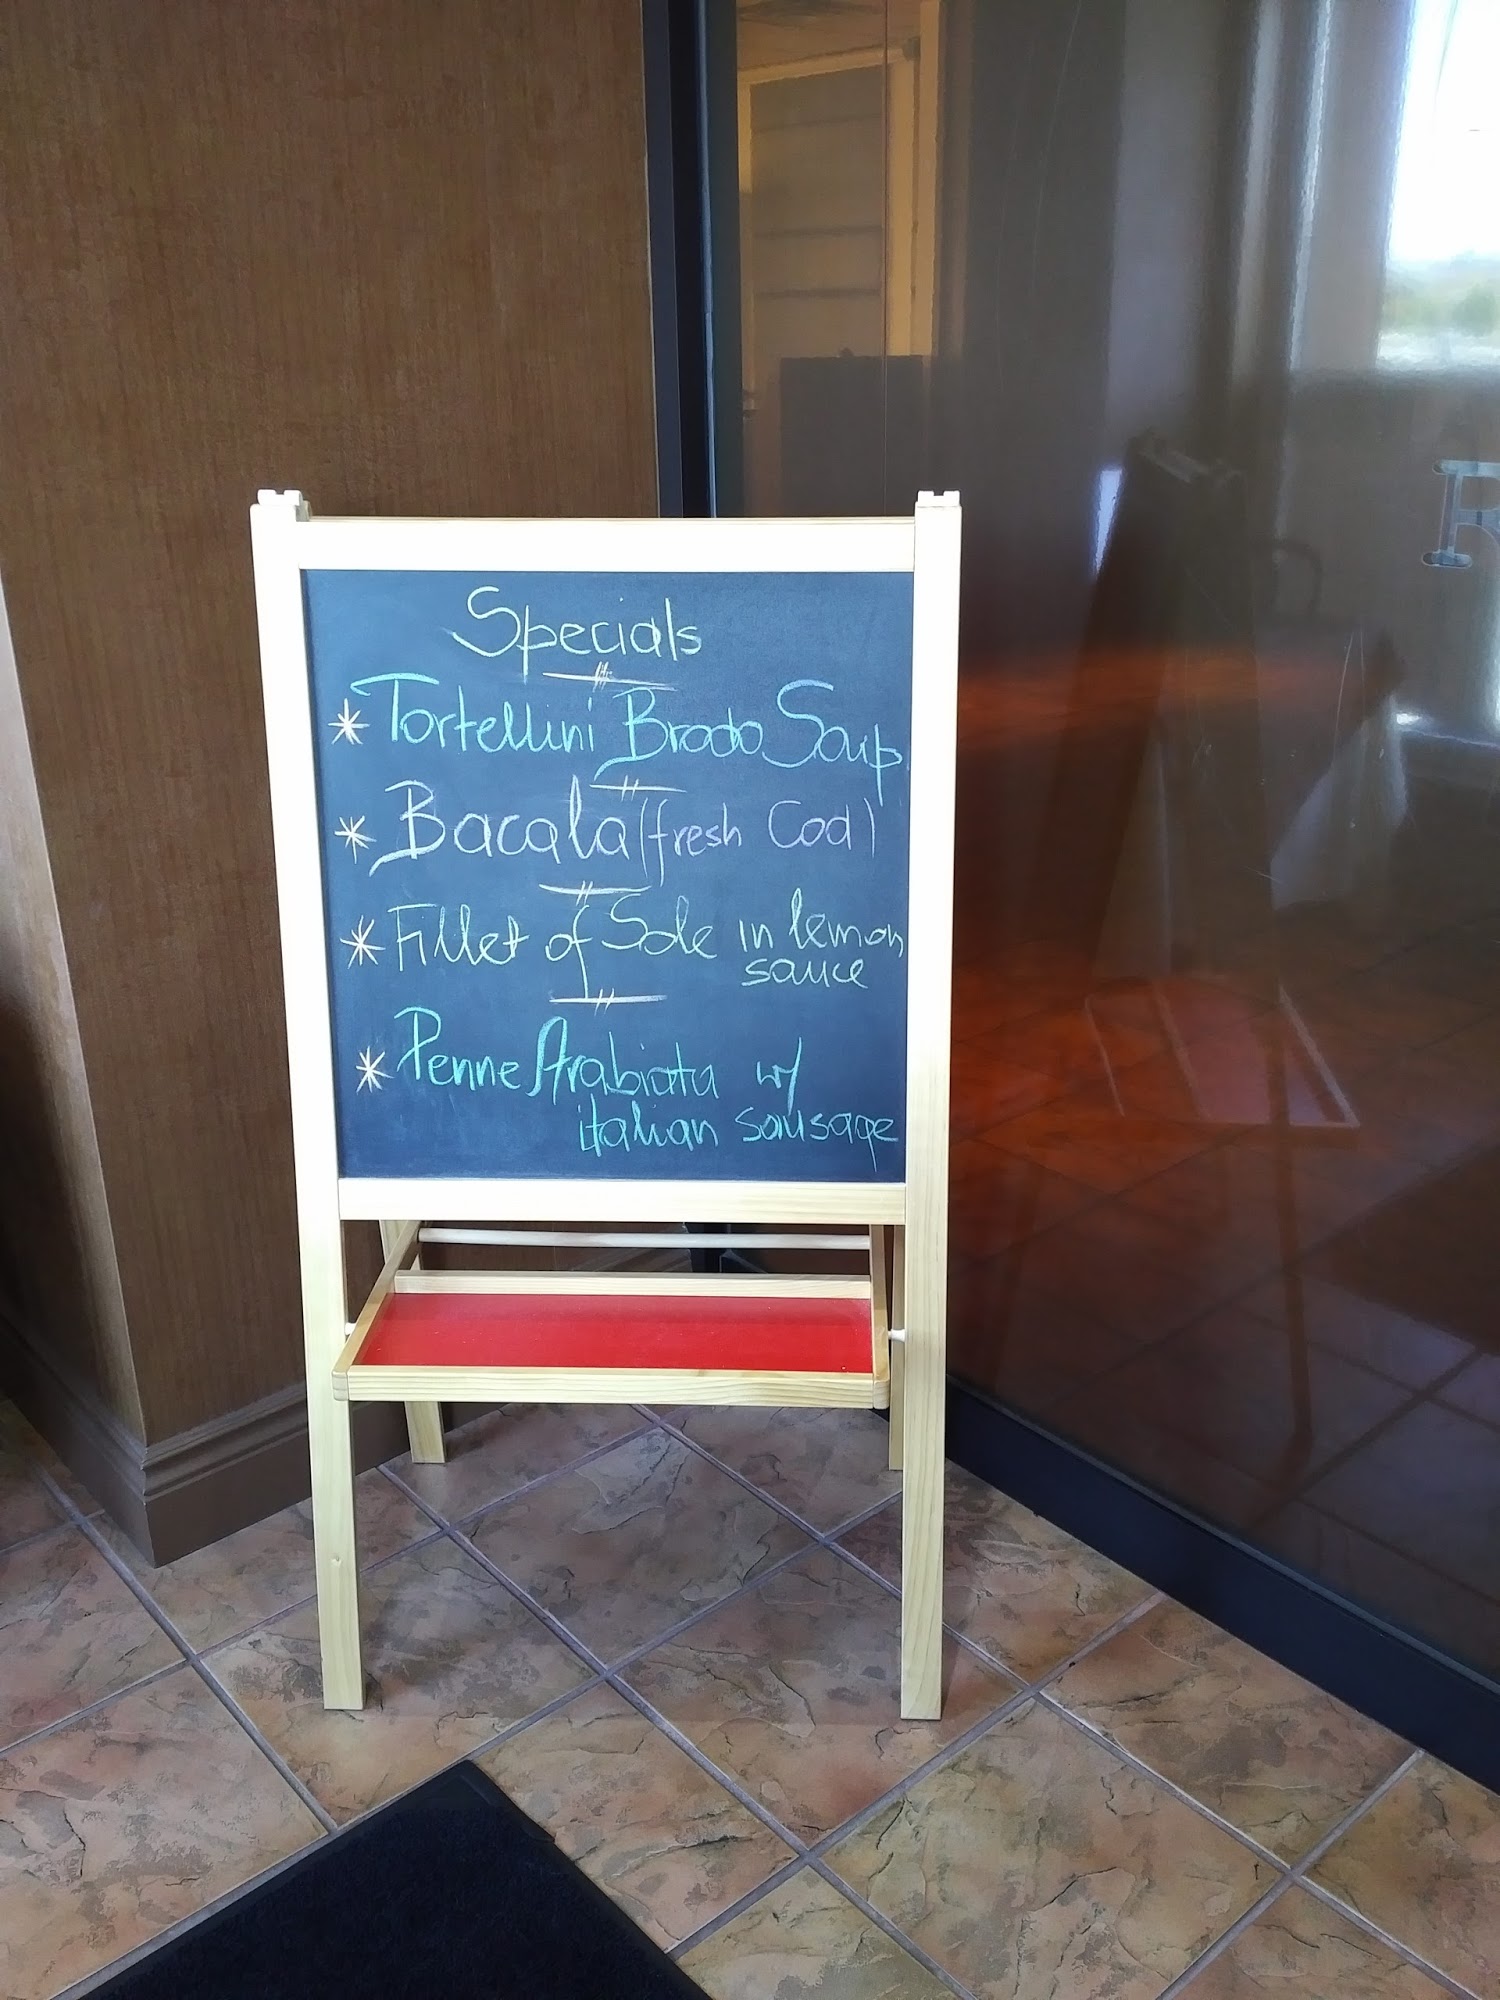 Specials
* Tortellini Brodo Soup
* Bacala (fresh Cod)
* Fillet of Sole in lemon
sauce
* Penne Arabiata w/
italian sausage
R